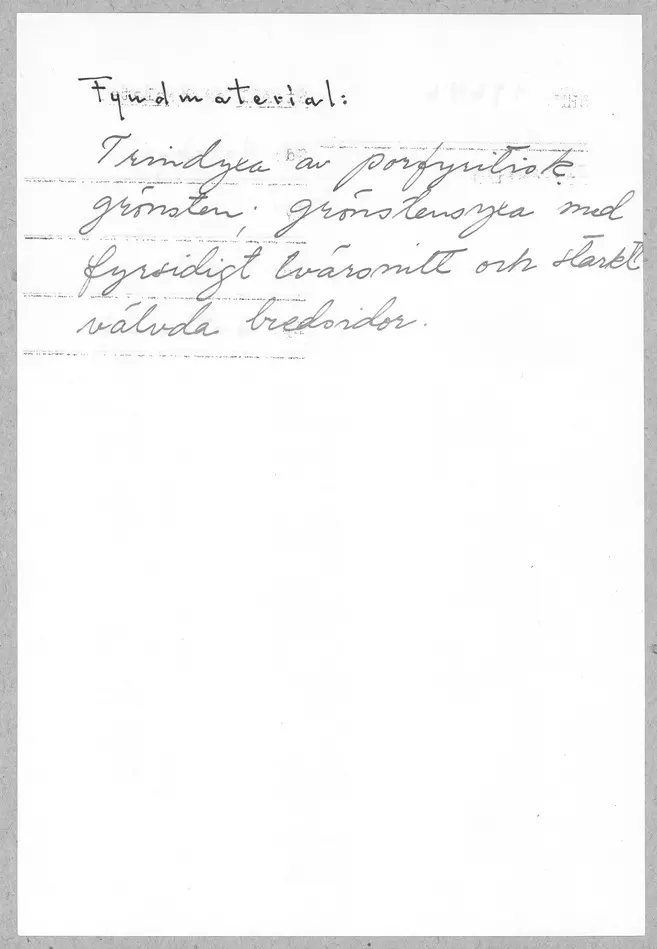 Fyndmaterial:
Trindyxa av porfyritisk
grönsten; grönstensyxa med
fyrsidigt tvärsnitt och starkt
välvda bredsidor.